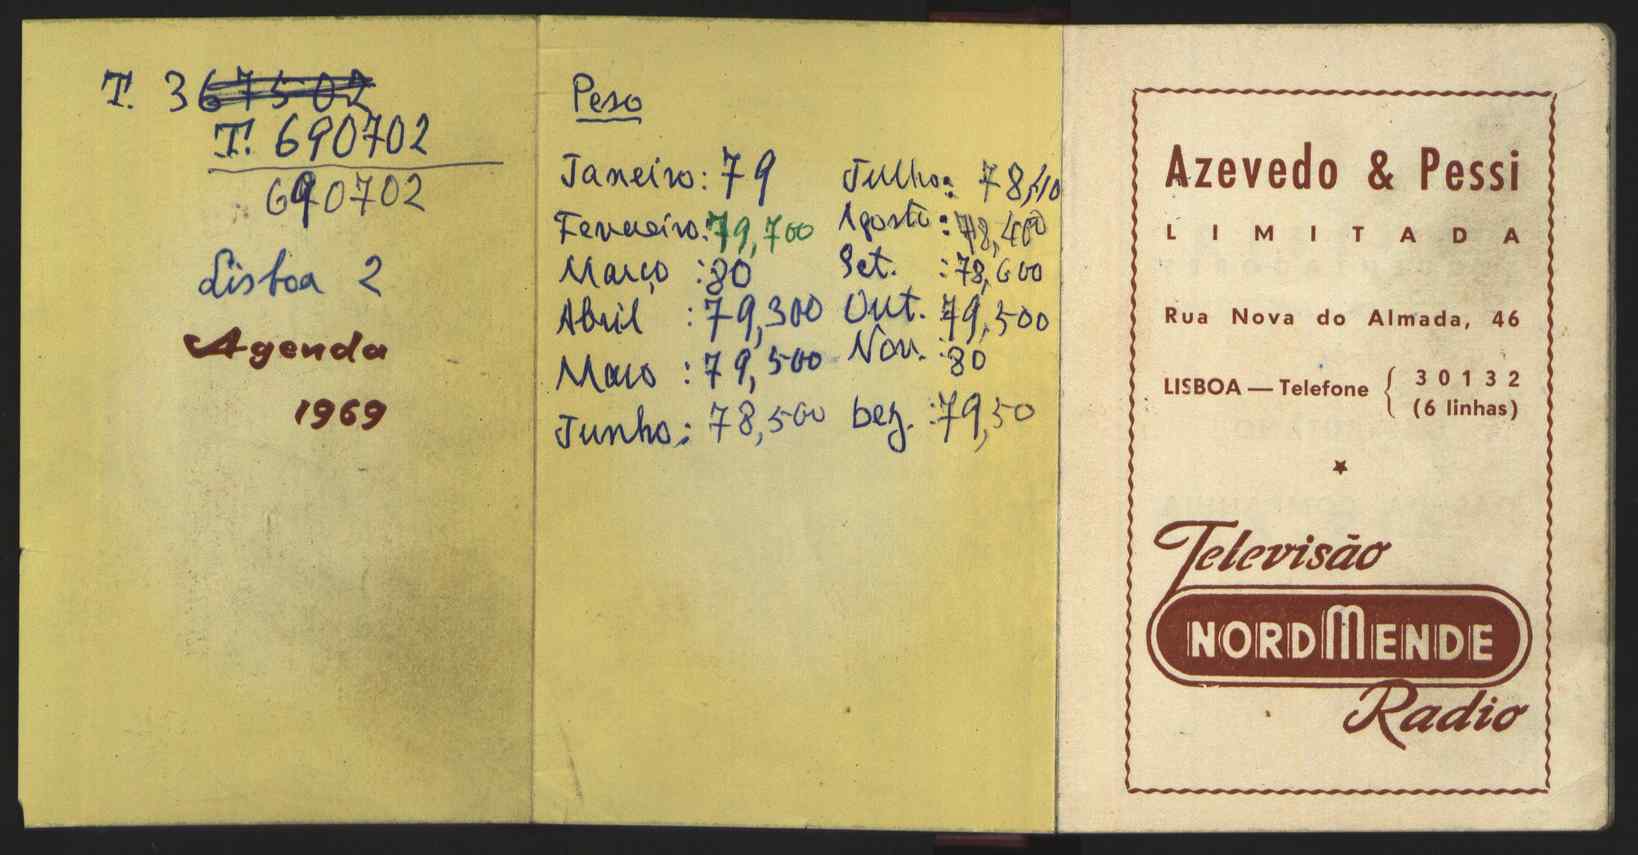 T. 367502
T. 690702
690702
Lisboa 2
Agenda
1969
Peso
Janeiro: 79
Fevereiro: 79,700
Março : 80
Abril : 79,300
Maio : 79,500
Junho: 78,500
Julho: 78,
Agosto: 78,400
Set. : 78,600
Out. 79,500
Nov. : 80
Dez. : 79,50
Azevedo & Pessi
LIMITADA
Rua Nova do Almada, 46
LISBOA — Telefone { 30132
(6 linhas)
Televisão
NORDMENDE
Radio